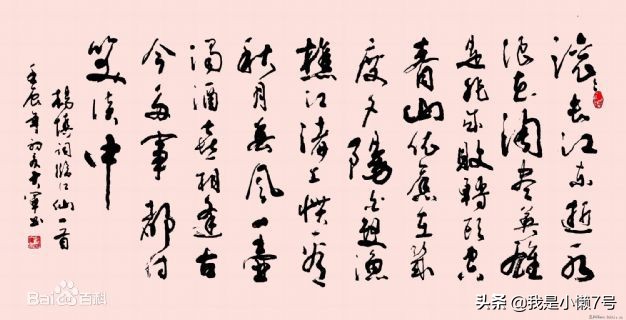 滚々长江东逝水
浪花淘尽英雄
是非成败转头空
青山依旧在几
度夕陽白发渔
樵江渚上惯看
秋月春风一壶
浊酒喜相逢古
今多事都付
笑谈中
杨慎词临江仙一首
壬辰年初夏大军书
Bai百科
头条 @我是小懒7号